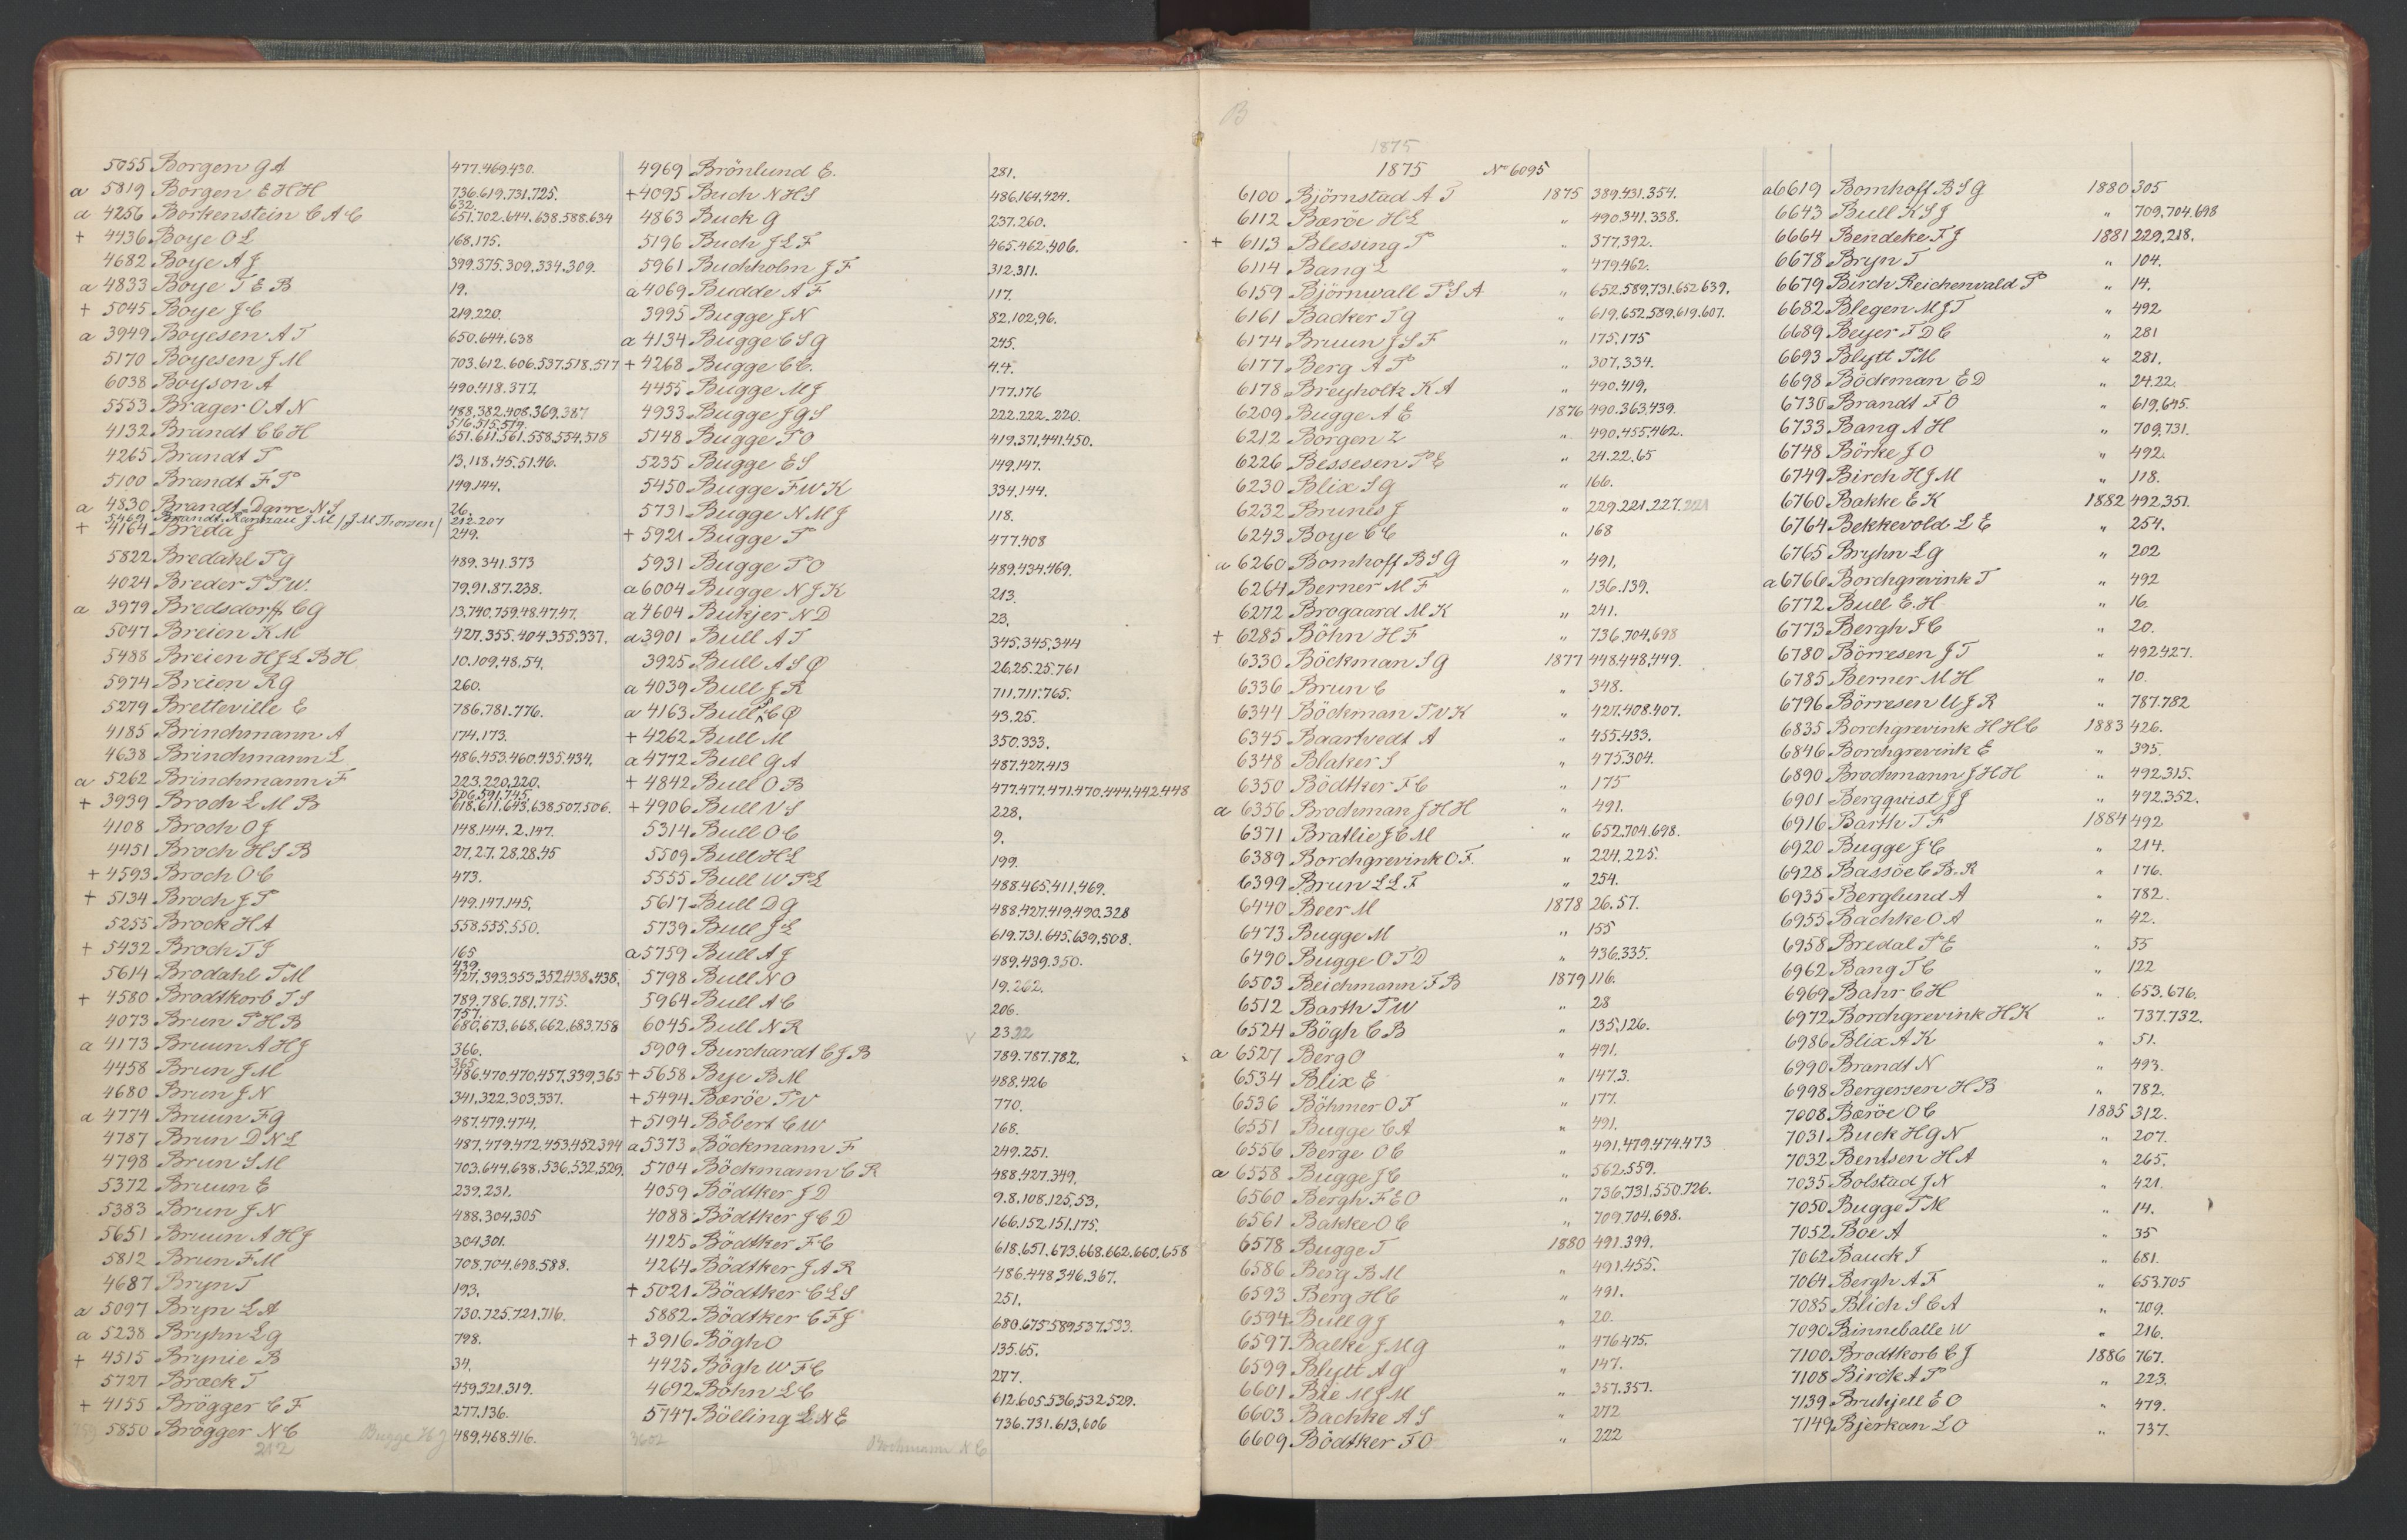 5055 Borgen G A 477.469.430.
a 5819 Borgen E H H 736.619.731.725.
632.
a 4256 Borkenstein C A C 651.702.644.638.588.634
+ 4436 Boye O L 168.175.
4682 Boye A J 399.375.309.334.309.
a 4833 Boye T E B 19.
+ 5045 Boye J C 219.220.
a 3949 Boyesen A T 650.644.638
5170 Boyesen J M 703.612.606.537.518.517
6038 Boyson A 490.418.377.
5553 Brager O A N 488.382.408.369.387
516.515.514.
4132 Brandt C C H 651.611.561.558.554.518
4265 Brandt P 13.118.45.51.46.
5100 Brandt F P 149.144.
a 4830 Brandt Darre N S 26.
5469 Brandt-Rantzau J M / J M Thorsen / 212.207
+ 4164 Breda J 249.
5822 Bredahl P G 489.341.373
4024 Breder P T W. 79.91.87.238.
a 3979 Bredsdorff C G 13.740.759.48.47.47.
5047 Breien K M 427.355.404.355.337.
5488 Breien H J L B H 10.109.48.54.
5974 Breien R G 260.
5279 Bretteville E 786.781.776.
4185 Brinchmann A 174.173.
4638 Brinchmann L 486.453.460.435.434.
a 5262 Brinchmann F 223.220.220.
506.591.745.
+ 3939 Broch L M B 618.611.643.638.507.506.
4108 Broch O J 148.144.2.147.
4451 Broch H S B 27.27.28.28.45
+ 4593 Broch O C 473.
+ 5134 Broch J P 149.147.145.
5255 Brock H A 558.555.550.
+ 5432 Broch T J 165
439.
5614 Brodahl P M 427.393.353.352.438.438.
+ 4580 Brodtkorb T S 789.786.781.775.
757.
4073 Brun P H B 680.673.668.662.683.758
a 4173 Bruun A H J 366.
365
4458 Brun J M 486.470.470.457.339.365
4680 Brun J N 341.322.303.337.
a 4774 Bruun F G 487.479.474.
4787 Brun D N L 487.479.472.453.452.394
4798 Brun S M 703.644.638.536.532.529.
5372 Bruun E 239.231.
5383 Brun J N 488.304.305
5651 Bruun A H J 304.301.
5812 Brun F M 708.704.698.588.
4687 Bryn T 193.
a 5097 Bryn L A 730.725.721.716.
a 5238 Bryhn L G 798.
+ 4515 Brynie B 34.
5727 Bræck T 459.321.319.
+ 4155 Brøgger C F 277.136.
5850 Brögger N C 489.468.416.
212
Bugge H J
4969 Brönlund E. 281.
+ 4095 Buch N H S 486.164.424.
4863 Buck G 237.260.
5196 Buch J L F 465.462.406.
5961 Buchholm J F 312.311.
a 4069 Budde A F 117.
3995 Bugge J N 82.102.96.
a 4134 Bugge C S G 245.
+ 4268 Bugge C C. 4.4.
4455 Bugge M J 177.176
4933 Bugge J G S 222.222.220.
5148 Bugge P O 419.371.441.450.
5235 Bugge E S 149.147.
5450 Bugge F W K 334.144.
5731 Bugge N M J 118.
+ 5921 Bugge P 477.408
5931 Bugge T O 489.434.469.
a 6004 Bugge N J K 213.
a 4604 Bukjer N D 23.
a 3901 Bull A T 345.345.344
3925 Bull A S Ø 26.25.25.761
a 4039 Bull J R 711.711.765.
a 4163 Bull C Ø 43.25.
+ 4262 Bull M 350.333.
a 4772 Bull G A 487.427.413
+ 4842 Bull O B 477.477.471.470.444.442.448
+ 4906 Bull V S 228.
5314 Bull O C 9.
5509 Bull H L 199.
5555 Bull W P L 488.465.411.469.
5617 Bull D G 488.427.419.490.328
5739 Bull J L 619.731.645.639.508.
a 5759 Bull A J 489.439.350.
5798 Bull N O 19.262.
5964 Bull A C 206.
6045 Bull N R 23.22
5909 Burchardt C J B 789.787.782.
+ 5658 Bye B M 488.426
+ 5494 Bæröe T V 770.
+ 5194 Böbert C W 168.
a 5373 Böckmann F 249.251.
5704 Böckmann C R 488.427.349.
4059 Bödtker J D 9.8.108.125.53.
4088 Bödtker J C D 166.152.151.175.
4125 Bödtker F C 618.651.673.668.662.660.658
4264 Bödtker J A R 486.448.346.367.
+ 5021 Bödtker C L S 251.
5882 Bödtker C F J 680.675.589.537.533.
+ 3916 Bögh O 135.65.
4425 Bögh W F C 277.
4692 Böhn L C 612.605.536.532.529.
5747 Bölling L N E 736.731.613.606
3602
Bochmann N C
B
1875
1875 No 6095
6100 Björnstad A T 1875 389.431.354.
6112 Bæröe H L " 490.341.338.
+ 6113 Blessing P " 377.392.
6114 Bang L " 479.462.
6159 Björnwall P S A " 652.589.731.652.639.
6161 Backer T G " 619.652.589.619.607.
6174 Bruun J S F " 175.175
6177 Berg A P " 307.334.
6178 Breyholtz K A " 490.419.
6209 Bugge A E 1876 490.363.439.
6212 Borgen Z " 490.455.462.
6226 Bessesen P E " 24.22.65
6230 Blix S G " 166.
6232 Brunes J " 229.221.227.221
6243 Boye C C " 168
a 6260 Bomhoff B S G " 491.
6264 Berner M F " 136.139.
6272 Brogaard M K " 241.
+ 6285 Böhn H F " 736.704.698
6330 Böckman S G 1877 448.448.449.
6336 Brun C " 348.
6344 Böckman T V K " 427.408.407.
6345 Baartvedt A " 455.433.
6348 Blaker S " 475.304.
6350 Bödtker F C " 175
a 6356 Brochman J H H " 491.
6371 Bratlie J E M " 652.704.698.
6389 Borchgrevink O F. " 224.225.
6399 Brun L L F " 254.
6440 Beer M 1878 26.57.
6473 Bugge M " 155
6490 Bugge O T D " 436.335.
6503 Beichmann F B 1879 116.
6512 Barth T W " 28
6524 Bögh C B " 135.126.
a 6527 Berg O " 491.
6534 Blix E " 147.3.
6536 Böhmer O F " 177.
6551 Bugge C A " 491.
6556 Berge O C " 491.479.474.473
a 6558 Bugge J C " 562.559.
6560 Bergh F E O " 736.731.550.726.
6561 Bakke O C " 709.704.698.
6578 Bugge T 1880 491.399.
6586 Berg B M " 491.455.
6593 Berg H C " 491.
6594 Bull G J " 20.
6597 Balke J M G " 476.475.
6599 Blytt A G " 147.
6601 Bie M J M " 357.357.
6603 Bachke A S " 272
6609 Bödtker F O " 222
a 6619 Bomhoff B S G 1880 305
6643 Bull K S J " 709.704.698
6664 Bendeke F J 1881 229.218.
6678 Bryn T " 104.
6679 Birch Reichenwald P " 14.
6682 Blegen M J T " 492
6689 Beyer T D C " 281
6693 Blytt P M " 281.
6698 Böckman E D " 24.22.
6730 Brandt F O " 619.645.
6733 Bang A H " 709.731.
6748 Börke J O " 492.
6749 Birch H J M " 118.
6760 Bakke E K 1882 492.351.
6764 Bekkevold L E " 254.
6765 Bryhn L G " 202
a 6766 Borchgrevink T " 492
6772 Bull E. H " 16.
6773 Bergh J C " 20.
6780 Börresen J T " 492.427.
6785 Berner M H " 10.
6796 Börresen U J R " 787.782
6835 Borchgrevink H H C 1883 426.
6846 Borchgrevink E " 395.
6890 Brochmann J H H " 492.315.
6901 Bergquist J J " 492.352.
6916 Barth T F 1884 492
6920 Bugge J C " 214.
6928 Bassöe C B. R " 176.
6935 Berglund A " 782.
6955 Bachke O A " 42.
6958 Bredal P E " 55
6962 Bang T C " 122
6969 Bahr C H " 653.676.
6972 Borchgrevink H K " 737.732.
6986 Blix A K " 51.
6990 Brandt N " 493.
6998 Bergersen H B " 782.
7008 Bæröe O C 1885 312.
7031 Buck H G N " 207.
7032 Bentsen H A " 265.
7035 Bolstad J N " 421.
7050 Bugge T M " 14.
7052 Boe A " 35
7062 Bauck J " 681.
7064 Bergh A F " 653.705
7085 Blich S C A " 709.
7090 Binneballe W " 216.
7100 Brodtkorb C J 1886 767.
7108 Birck A P " 223.
7139 Brukjell E O " 479.
7149 Bjerkan L O " 737.